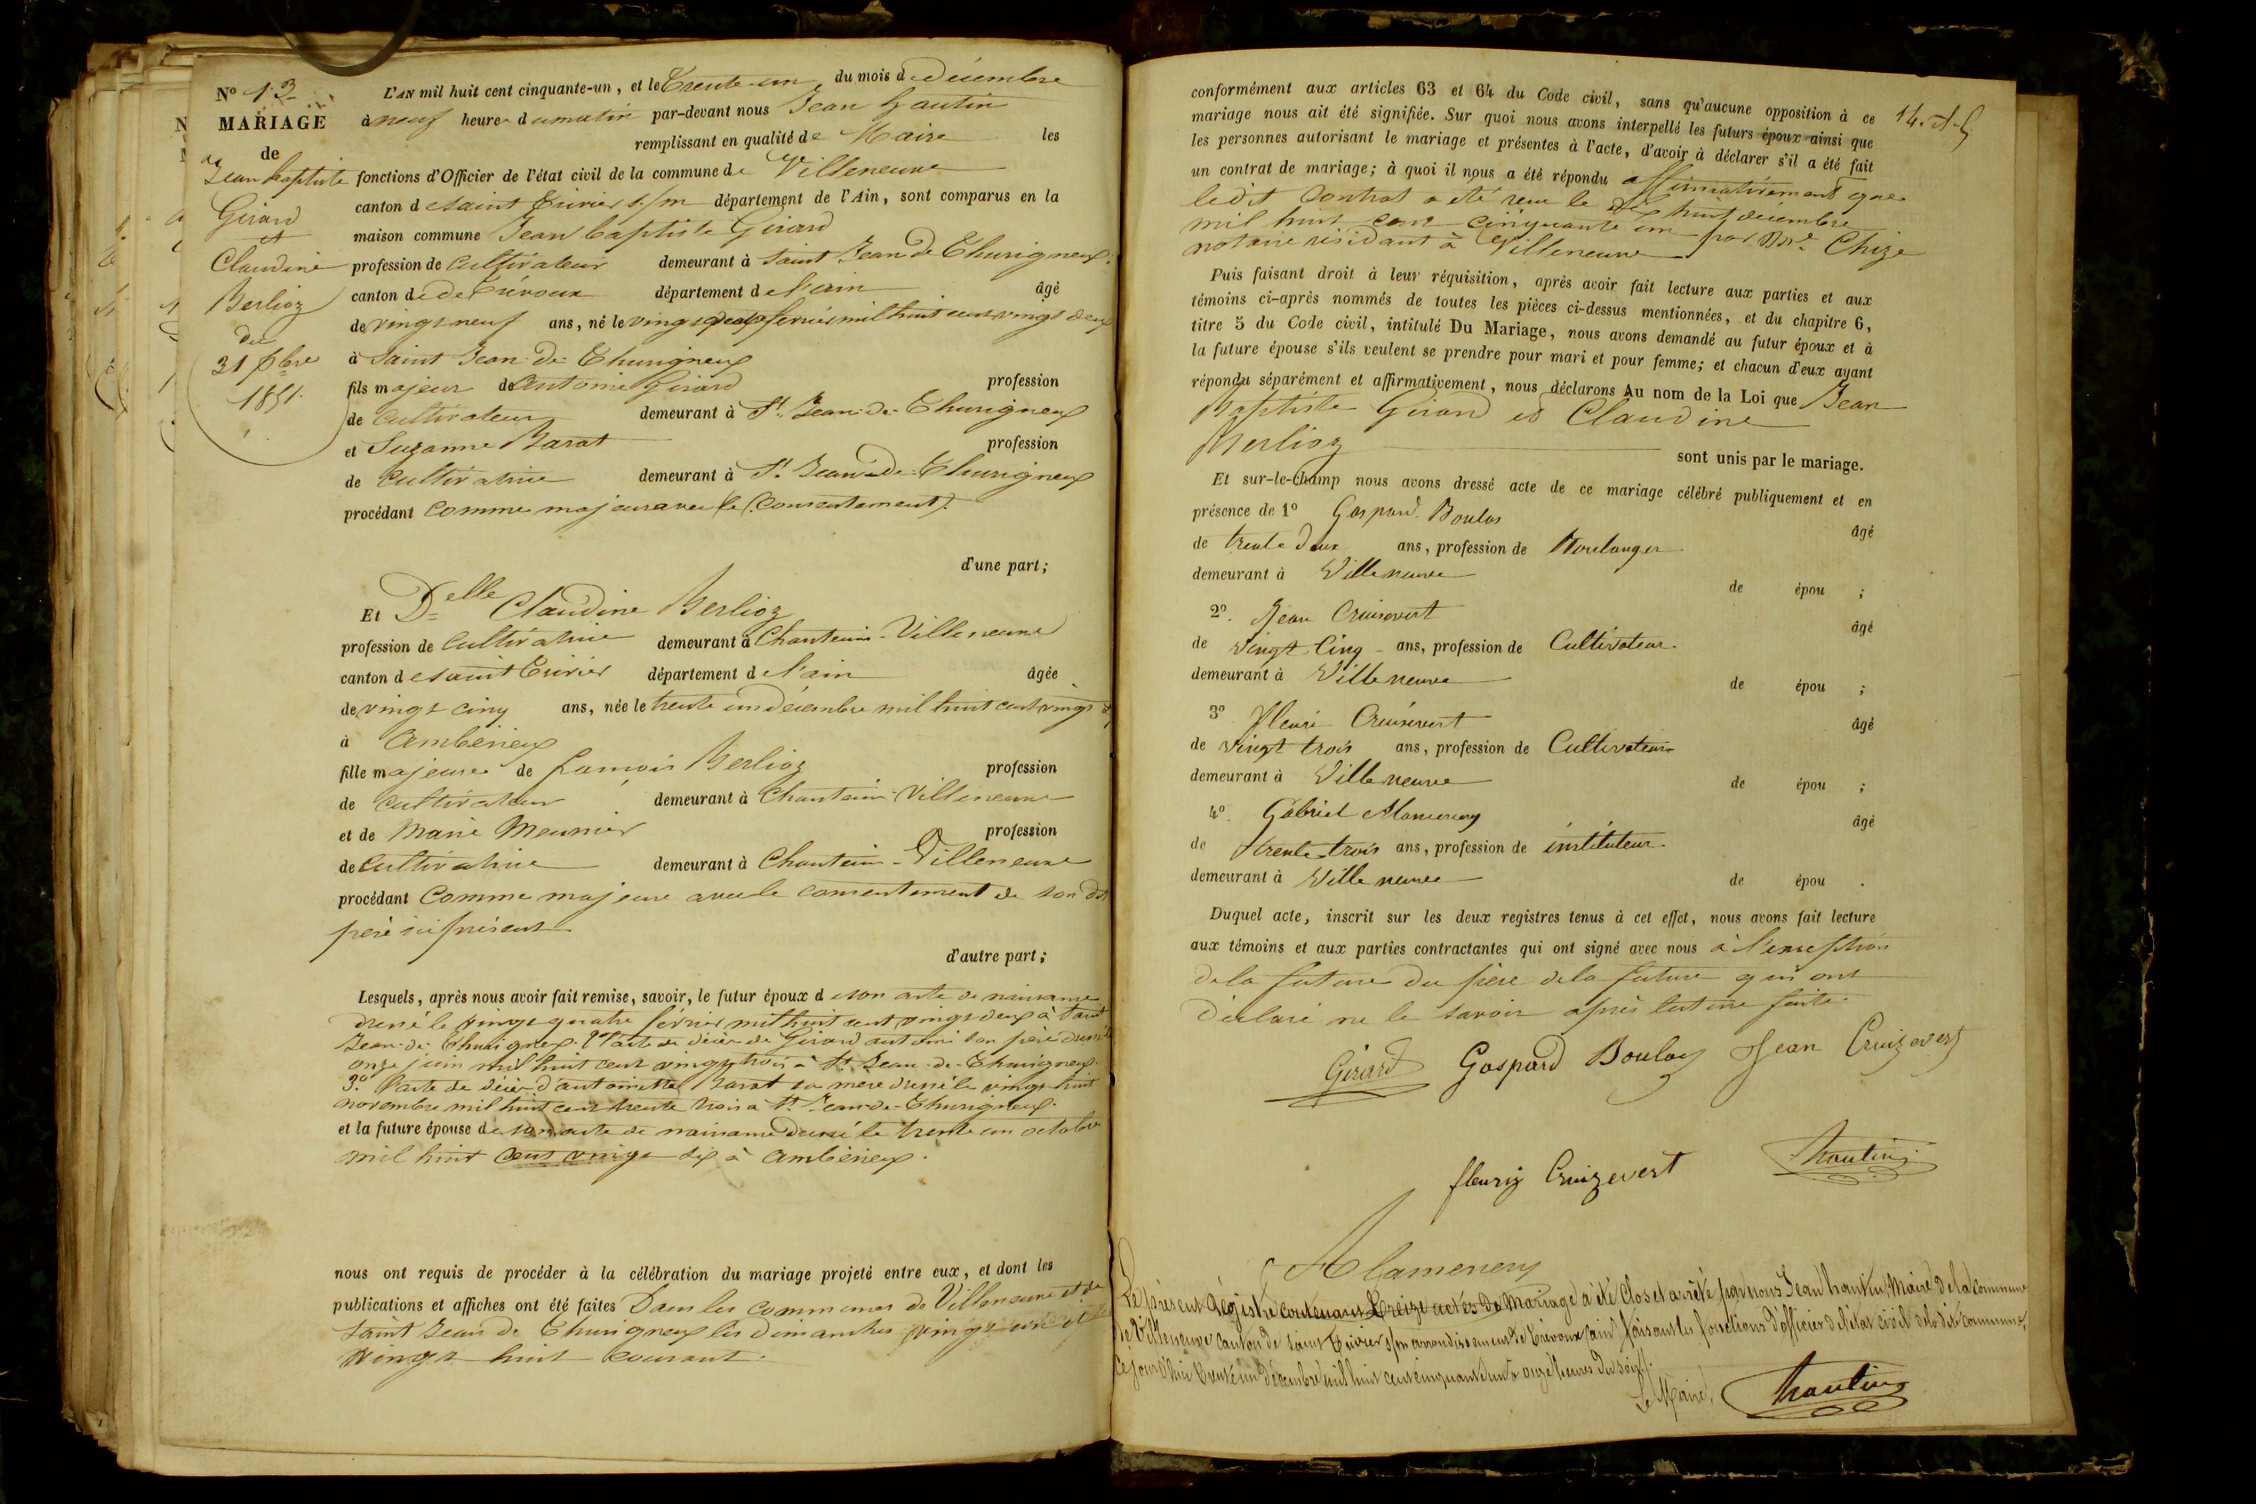 N° 13
MARIAGE
de
Jean Baptiste
Girard
et
Claudine
Berlioz
du
31 Xbre
1851.
L'AN mil huit cent cinquante-un, et le Trente-un du mois de décembre
à neuf heures du matin par-devant nous Jean hautin
remplissant en qualité de Maire les
fonctions d'Officier de l'état civil de la commune de Villeneuve
canton de saint Trivier s/m département de l'Ain, sont comparus en la
maison commune Jean baptiste Girard
profession de cultivateur demeurant à saint Jean de Thurigneux
canton de de Trévoux département de l'ain âgé
de vingt neuf ans, né le vingt février mil huit cent vingt deux
à Saint Jean-de-Thurigneux
fils majeur de antoine Girard profession
de cultivateur demeurant à St. Jean-de-Thurigneux
et Suzanne Barat profession
de cultivatrice demeurant à St. Jean-de-Thurigneux
procédant comme majeur avec le consentement
d'une part;
Et Delle Claudine Berlioz
profession de cultivatrice demeurant à Chanteins-Villeneuve
canton de saint Trivier département de l'ain âgée
de vingt cinq ans, née le trente un décembre mil huit cent vingt
à Ambérieux
fille majeure de Berlioz profession
de cultivateur demeurant à Chanteins-Villeneuve
et de Marie Meunier profession
de cultivatrice demeurant à Chanteins-Villeneuve
procédant comme majeure avec le consentement de son dit
père ici présent
d'autre part;
Lesquels, après nous avoir fait remise, savoir, le futur époux de son acte de naissance
dressé le vingt quatre février mil huit cent vingt deux à saint
Jean-de-Thurigneux. 2° l'acte de décès de Girard antoine son père dressé le
onze juin mil huit cent vingt trois à St. Jean-de-Thurigneux.
3° l'acte de décès d'antoinette Barat sa mère dressé le vingt huit
novembre mil huit cent trente trois à St. Jean-de-Thurigneux.
et la future épouse de son acte de naissance dressé le trente un octobre
mil huit cent vingt six à ambérieux.
nous ont requis de procéder à la célébration du mariage projeté entre eux, et dont les
publications et affiches ont été faites Dans les communes de Villeneuve et de
saint Jean de Thurigneux les dimanches vingt un et
vingt huit courant.
14. A. G
conformément aux articles 63 et 64 du Code civil, sans qu'aucune opposition à ce
mariage nous ait été signifiée. Sur quoi nous avons interpellé les futurs époux ainsi que
les personnes autorisant le mariage et présentes à l'acte, d'avoir à déclarer s'il a été fait
un contrat de mariage; à quoi il nous a été répondu affirmativement que
ledit contrat a été reçu le dix huit décembre
mil huit cent cinquante un par Me. Chize
notaire résidant à Villeneuve
Puis faisant droit à leur réquisition, après avoir fait lecture aux parties et aux
témoins ci-après nommés de toutes les pièces ci-dessus mentionnées, et du chapitre 6,
titre 5 du Code civil, intitulé Du Mariage, nous avons demandé au futur époux et à
la future épouse s'ils veulent se prendre pour mari et pour femme; et chacun d'eux ayant
répondu séparément et affirmativement, nous déclarons Au nom de la Loi que Jean
Baptiste Girard et Claudine
Berlioz sont unis par le mariage.
Et sur-le-champ nous avons dressé acte de ce mariage célébré publiquement et en
présence de 1° Gaspard Boulas âgé
de trente deux ans, profession de Boulanger
demeurant à Villeneuve de épou ;
2°. Jean Cruizevert âgé
de vingt cinq ans, profession de Cultivateur.
demeurant à Villeneuve de épou ;
3° Fleuri Cruizevert âgé
de vingt trois ans, profession de Cultivateur
demeurant à Villeneuve de épou ;
4°. Gabriel Alamercery âgé
de trente trois ans, profession de instituteur.
demeurant à Villeneuve de épou .
Duquel acte, inscrit sur les deux registres tenus à cet effet, nous avons fait lecture
aux témoins et aux parties contractantes qui ont signé avec nous à l'exception
de la future du père de la future qui ont
déclaré ne le savoir après lecture faite.
Girard Gaspard Boulas Jean Cruizevert
fleury Cruizevert hautin
Alamercery
Le présent Registre contenant treize actes de mariage a été clos et arrêté par nous Jean hautin, Maire de la commune
de Villeneuve canton de saint Trivier s/m arrondissement de Trévoux ain faisant les fonctions d'officier de l'état civil de la dite commune,
ce jourd'hui trente un décembre mil huit cent cinquante un à onze heures du soir.
Le Maire, hautin